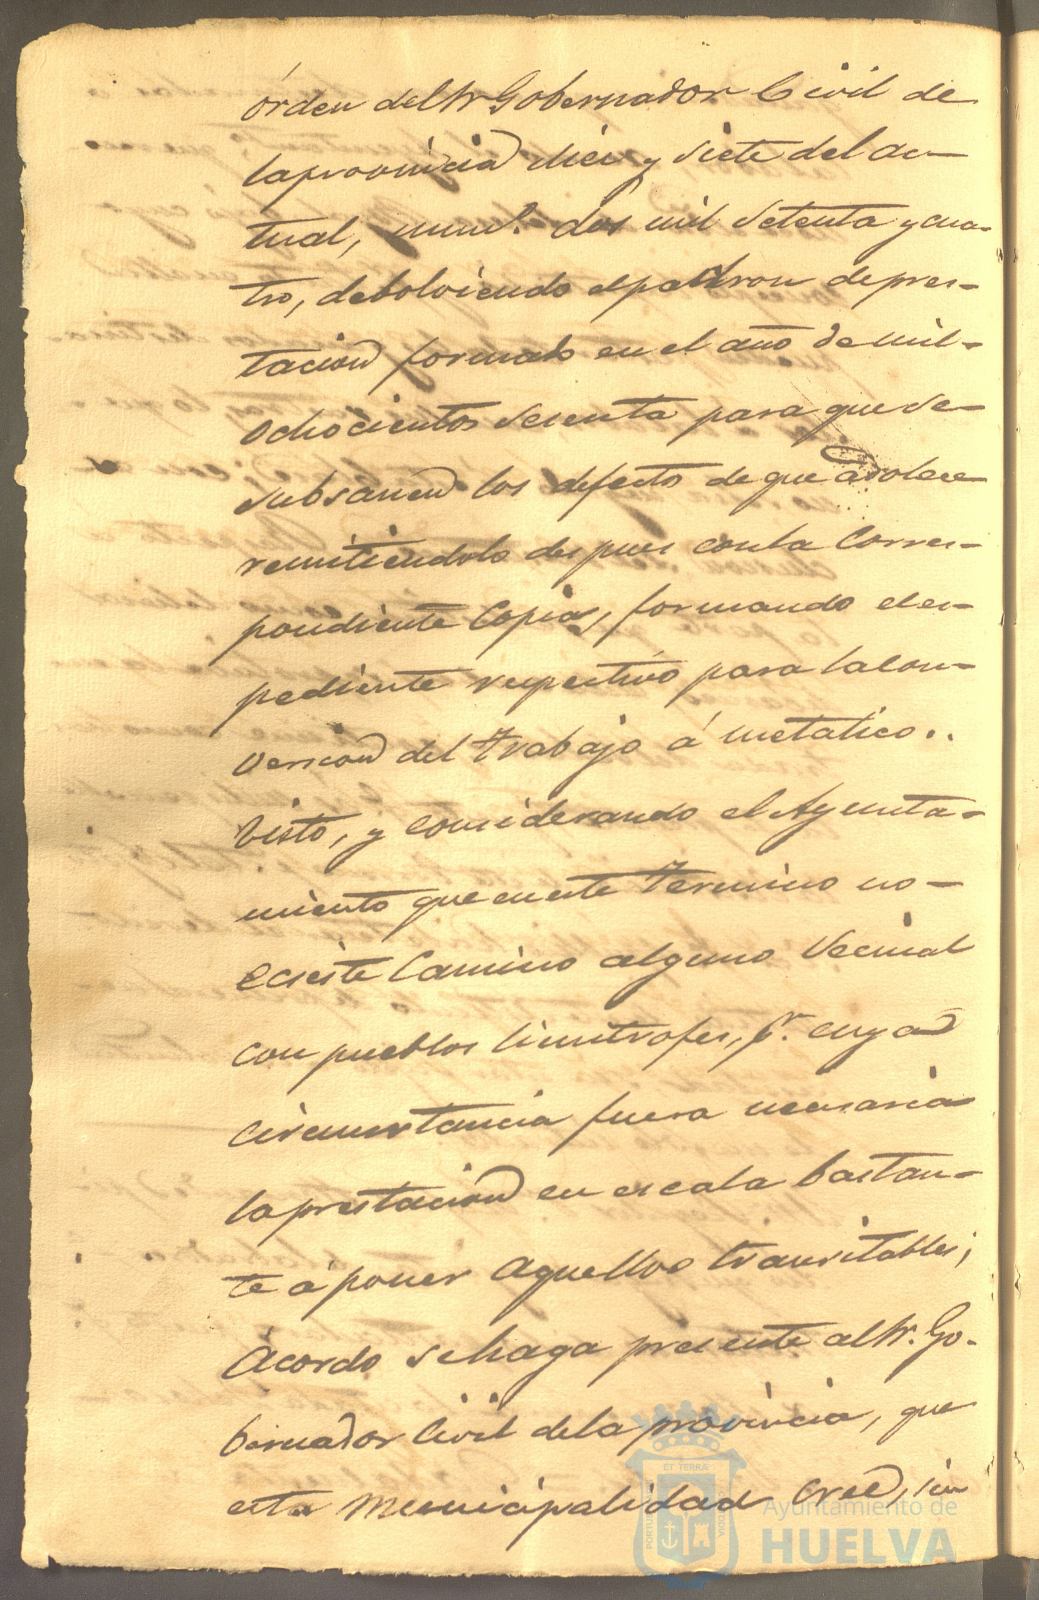 órden del Sr Gobernador Civil de
la provincia diez y siete del ac-
tual, num.º dos mil setenta y cua-
tro, debolviendo el padron de pres-
tacion formado en el año de mil-
ochocientos sesenta para que se-
subsanen los defecto de que adolece
remitiendolo despues con la Corres-
pondiente Copia, formando el es-
pediente respectivo para la con-
version del trabajo á metalico..
Visto, y considerando el Ayunta-
miento que en este termino no-
ecsiste Camino alguno Vecinal
con pueblos limitrofes, p.r cuya
circunstancia fuera necesaria
la prestacion en escala bastan-
te á poner aquellos transitables;
Acordo se haga presente al Sr. Go-
bernador Civil de la provincia, que
esta Municipalidad cree, sin
ET TERRÆ
Ayuntamiento de
HUELVA